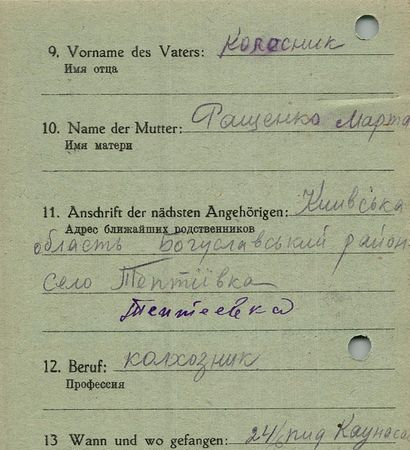 9. Vorname des Vaters: Колосник
Имя отца
10. Name der Mutter: Гащенко Марта
Имя матери
11. Anschrift der nächsten Angehörigen: Київська
Адрес ближайших родственников
область Богуславський район
село Тептіївка
Тептеевка
12. Beruf: колхозник
Профессия
13 Wann und wo gefangen: 24/ під